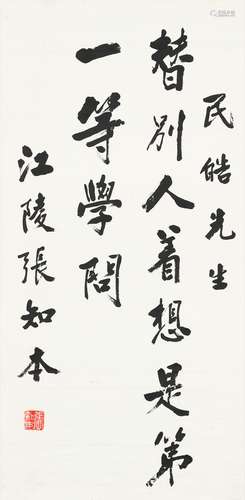 民皓先生
替別人着想是第
一等學問
江陵張知本